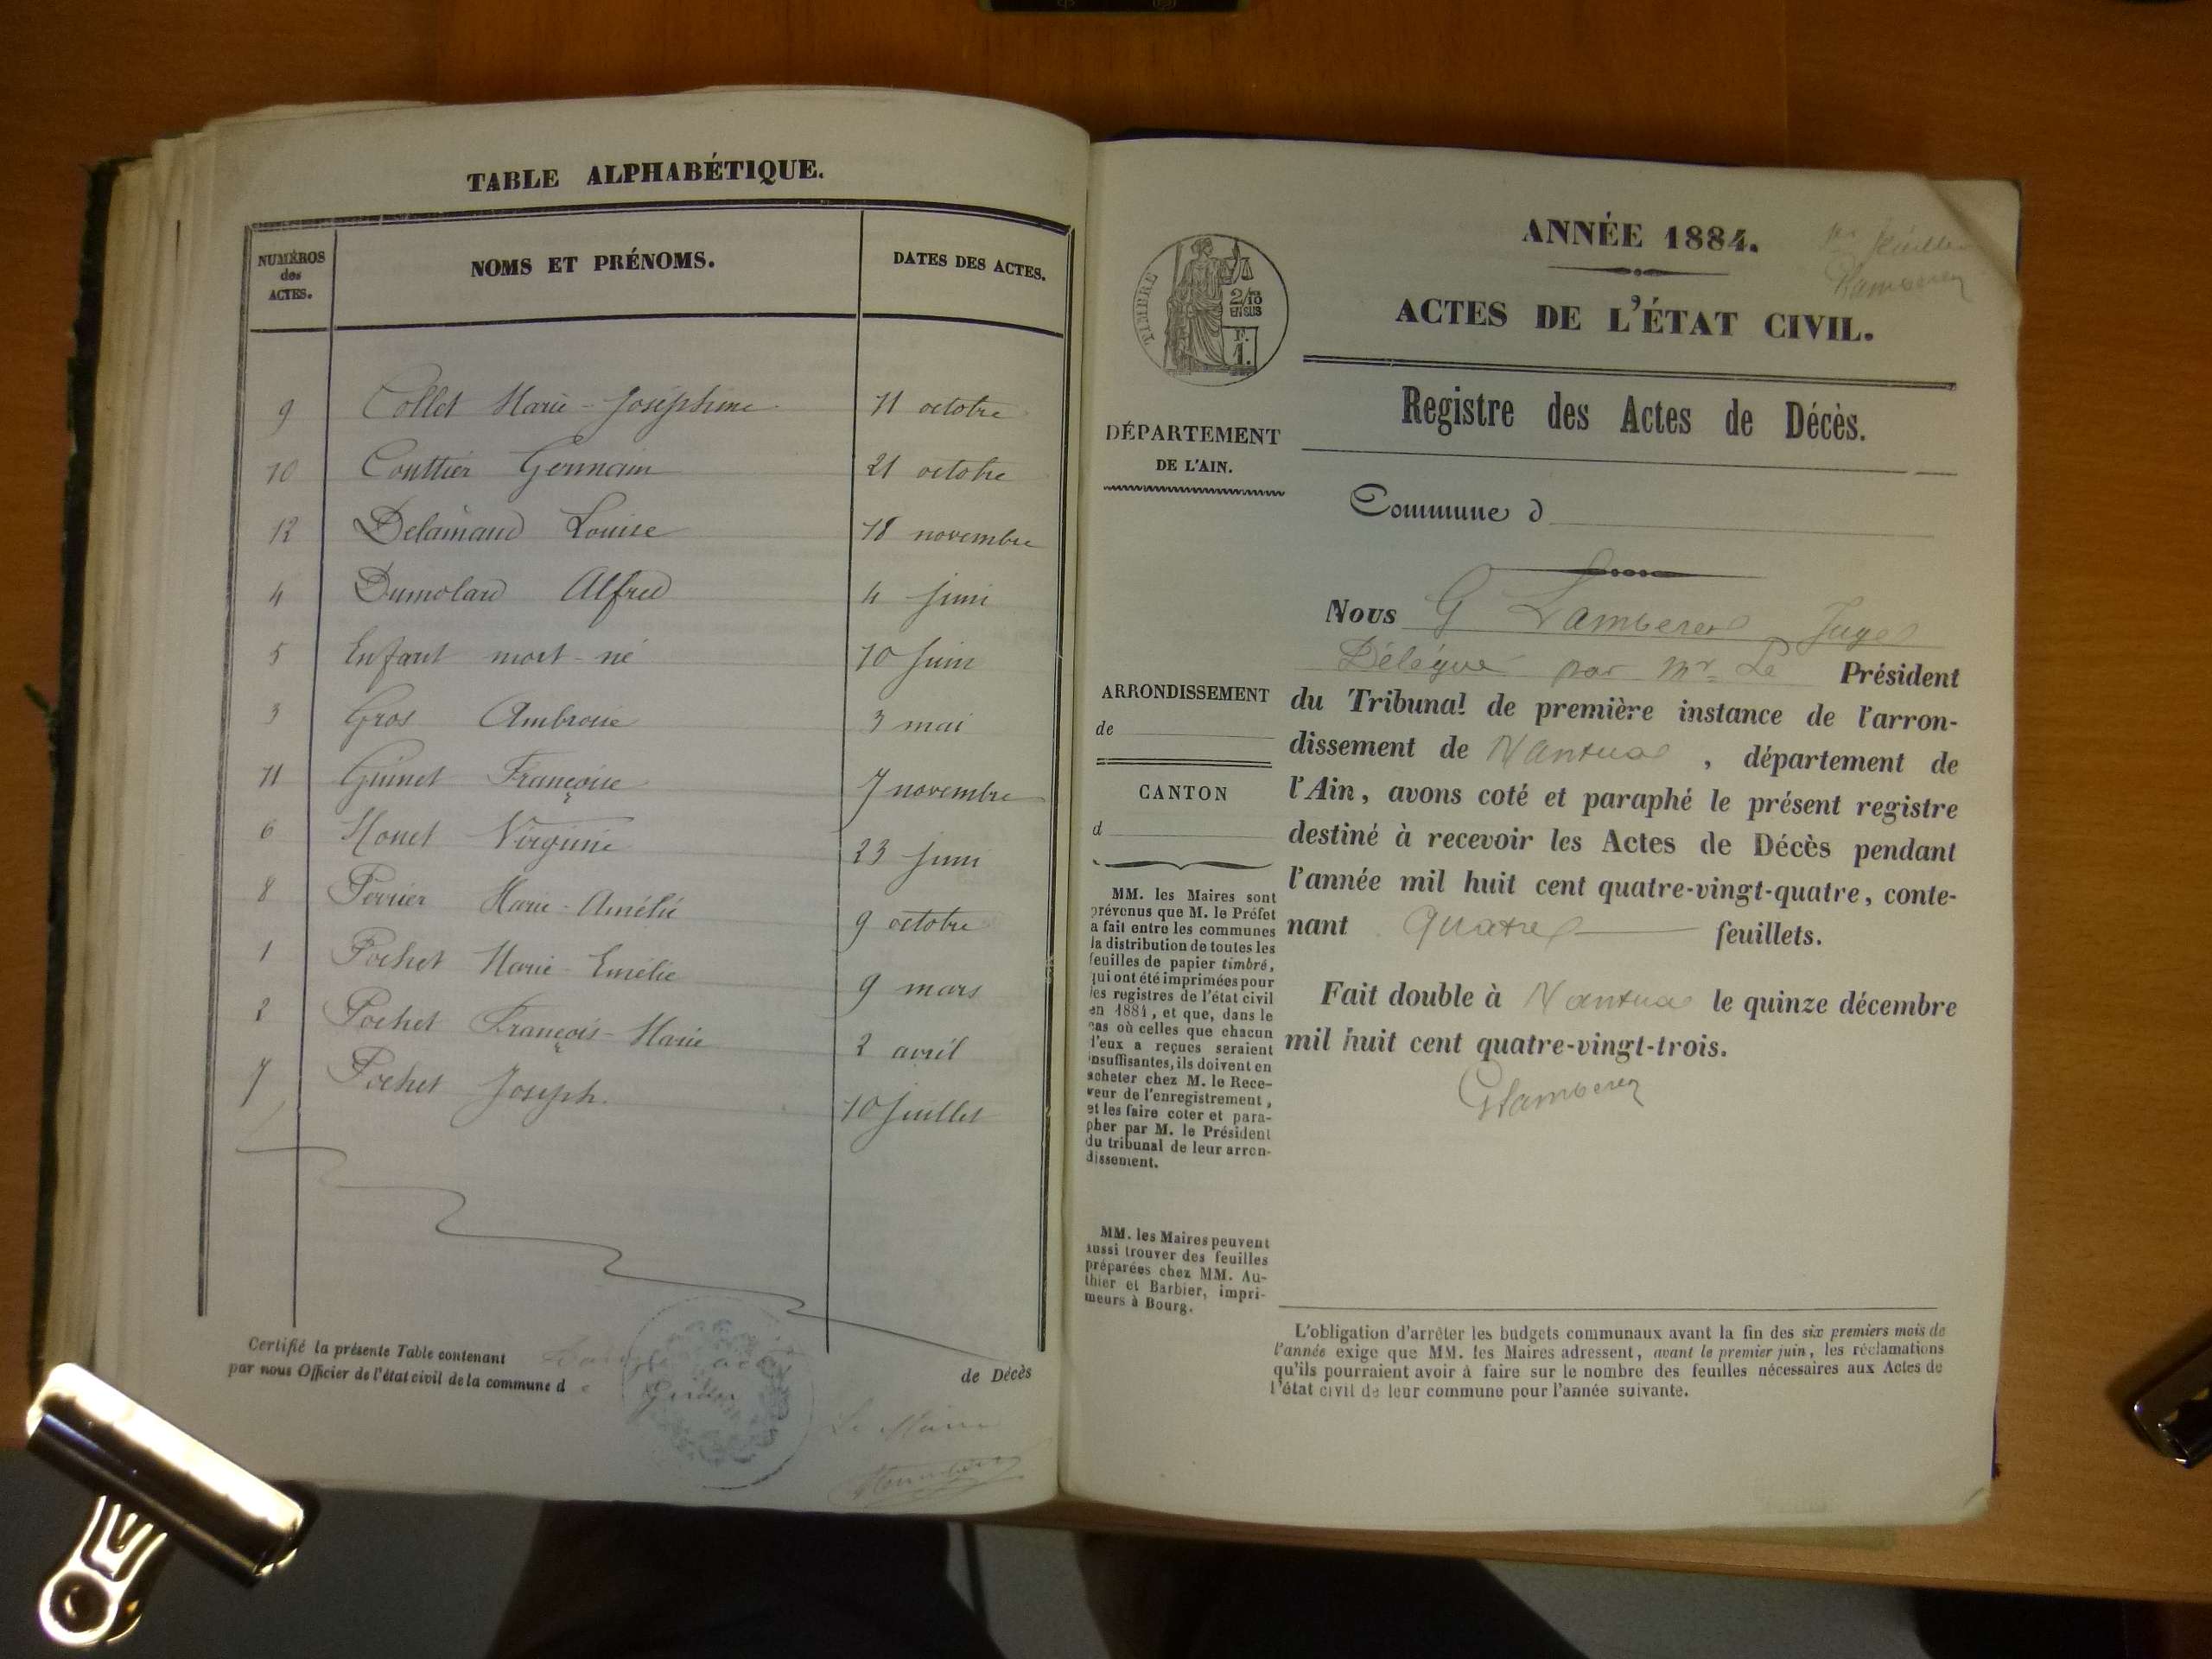 TABLE ALPHABÉTIQUE.
NUMÉROS des ACTES. NOMS ET PRÉNOMS. DATES DES ACTES.
9 Collet Marie-Joséphine 11 octobre
10 Couttier Germain 21 octobre
12 Delainaud Louise 18 novembre
4 Dumolard Alfred 4 juin
5 Enfant mort-né 10 juin
3 Gros Ambroise 3 mai
11 Guinet Françoise 7 novembre
6 Monet Virginie 23 juin
8 Perrier Marie-Amélie 9 octobre
1 Pochet Marie-Emélie 9 mars
2 Pochet François-Marie 2 avril
7 Pochet Joseph. 10 Juillet
Certifié la présente Table contenant
de Décès
par nous Officier de l'état civil de la commune d
Le Maire
ANNÉE 1884.
ACTES DE L'ÉTAT CIVIL.
TIMBRE
2/10
EN SUS
F.
1.
Registre des Actes de Décès.
DÉPARTEMENT
DE L'AIN.
Commune d
Nous G Lamberet Juge
Délégué par Mr Le Président
du Tribunal de première instance de l'arron-
dissement de Nantua, département de
l'Ain, avons coté et paraphé le présent registre
destiné à recevoir les Actes de Décès pendant
l'année mil huit cent quatre-vingt-quatre, conte-
nant Quatre feuillets.
Fait double à Nantua le quinze décembre
mil huit cent quatre-vingt-trois.
ARRONDISSEMENT
de
CANTON
d
MM. les Maires sont
prévenus que M. le Préfet
a fait entre les communes
la distribution de toutes les
feuilles de papier timbré,
qui ont été imprimées pour
les registres de l'état civil
en 1884, et que, dans le
cas où celles que chacun
d'eux a reçues seraient
insuffisantes, ils doivent en
acheter chez M. le Rece-
veur de l'enregistrement,
et les faire coter et para-
pher par M. le Président
du tribunal de leur arron-
dissement.
MM. les Maires peuvent
aussi trouver des feuilles
préparées chez MM. Au-
thier et Barbier, impri-
meurs à Bourg.
L'obligation d'arrêter les budgets communaux avant la fin des six premiers mois de
l'année exige que MM. les Maires adressent, avant le premier juin, les réclamations
qu'ils pourraient avoir à faire sur le nombre des feuilles nécessaires aux Actes de
l'état civil de leur commune pour l'année suivante.